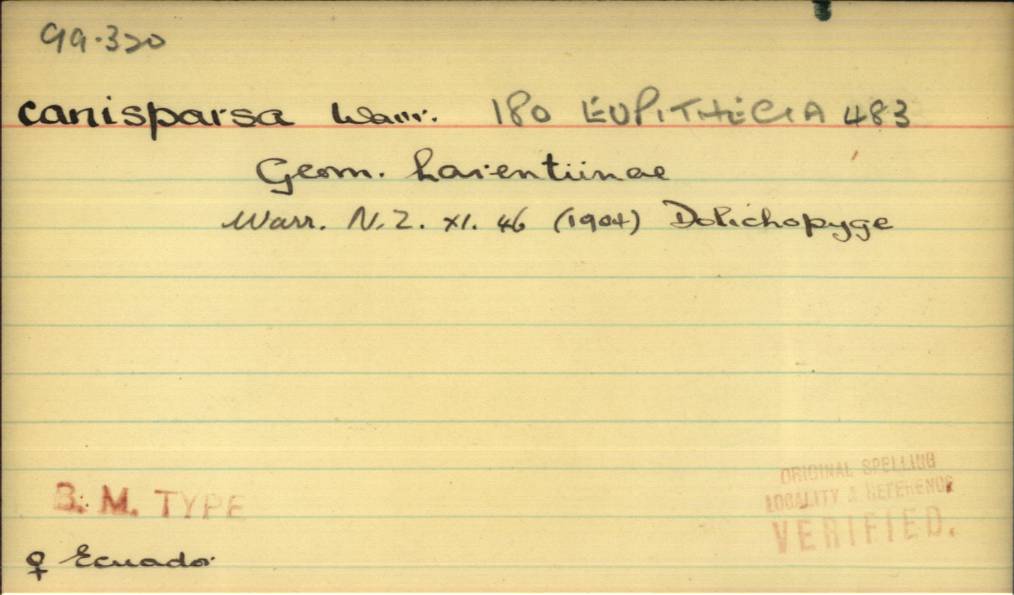 99.320
canisparsa Warr. 180 EUPITHECIA 483
Geom. Larentiinae
Warr. N.Z. XI. 46 (1904) Dolichopyge
B. M. TYPE
ORIGINAL SPELLING
LOCALITY & REFERENCE
VERIFIED.
♀ Ecuador